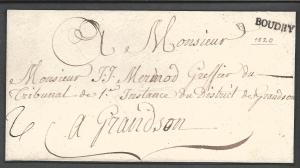 A Monsieur
BOUDRY
1820
Monsieur J. J. Mermod Greffier du
Tribunal de 1.re Instance du District de Grandson
a Grandson